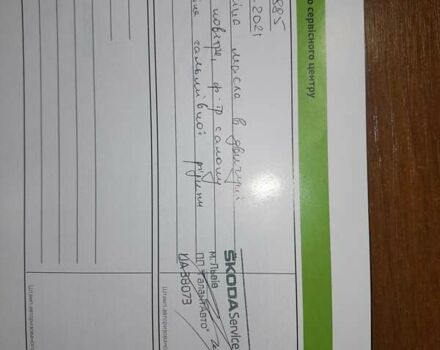 о сервісного центру
885
.2021
масла в двигуні
повітря, ф-тр салону
гальмівної рідини
ŠKODA Service
м. Львів
ПП "Галант Авто"
UA-38073
Штамп авторизованого
Штамп авторизованого